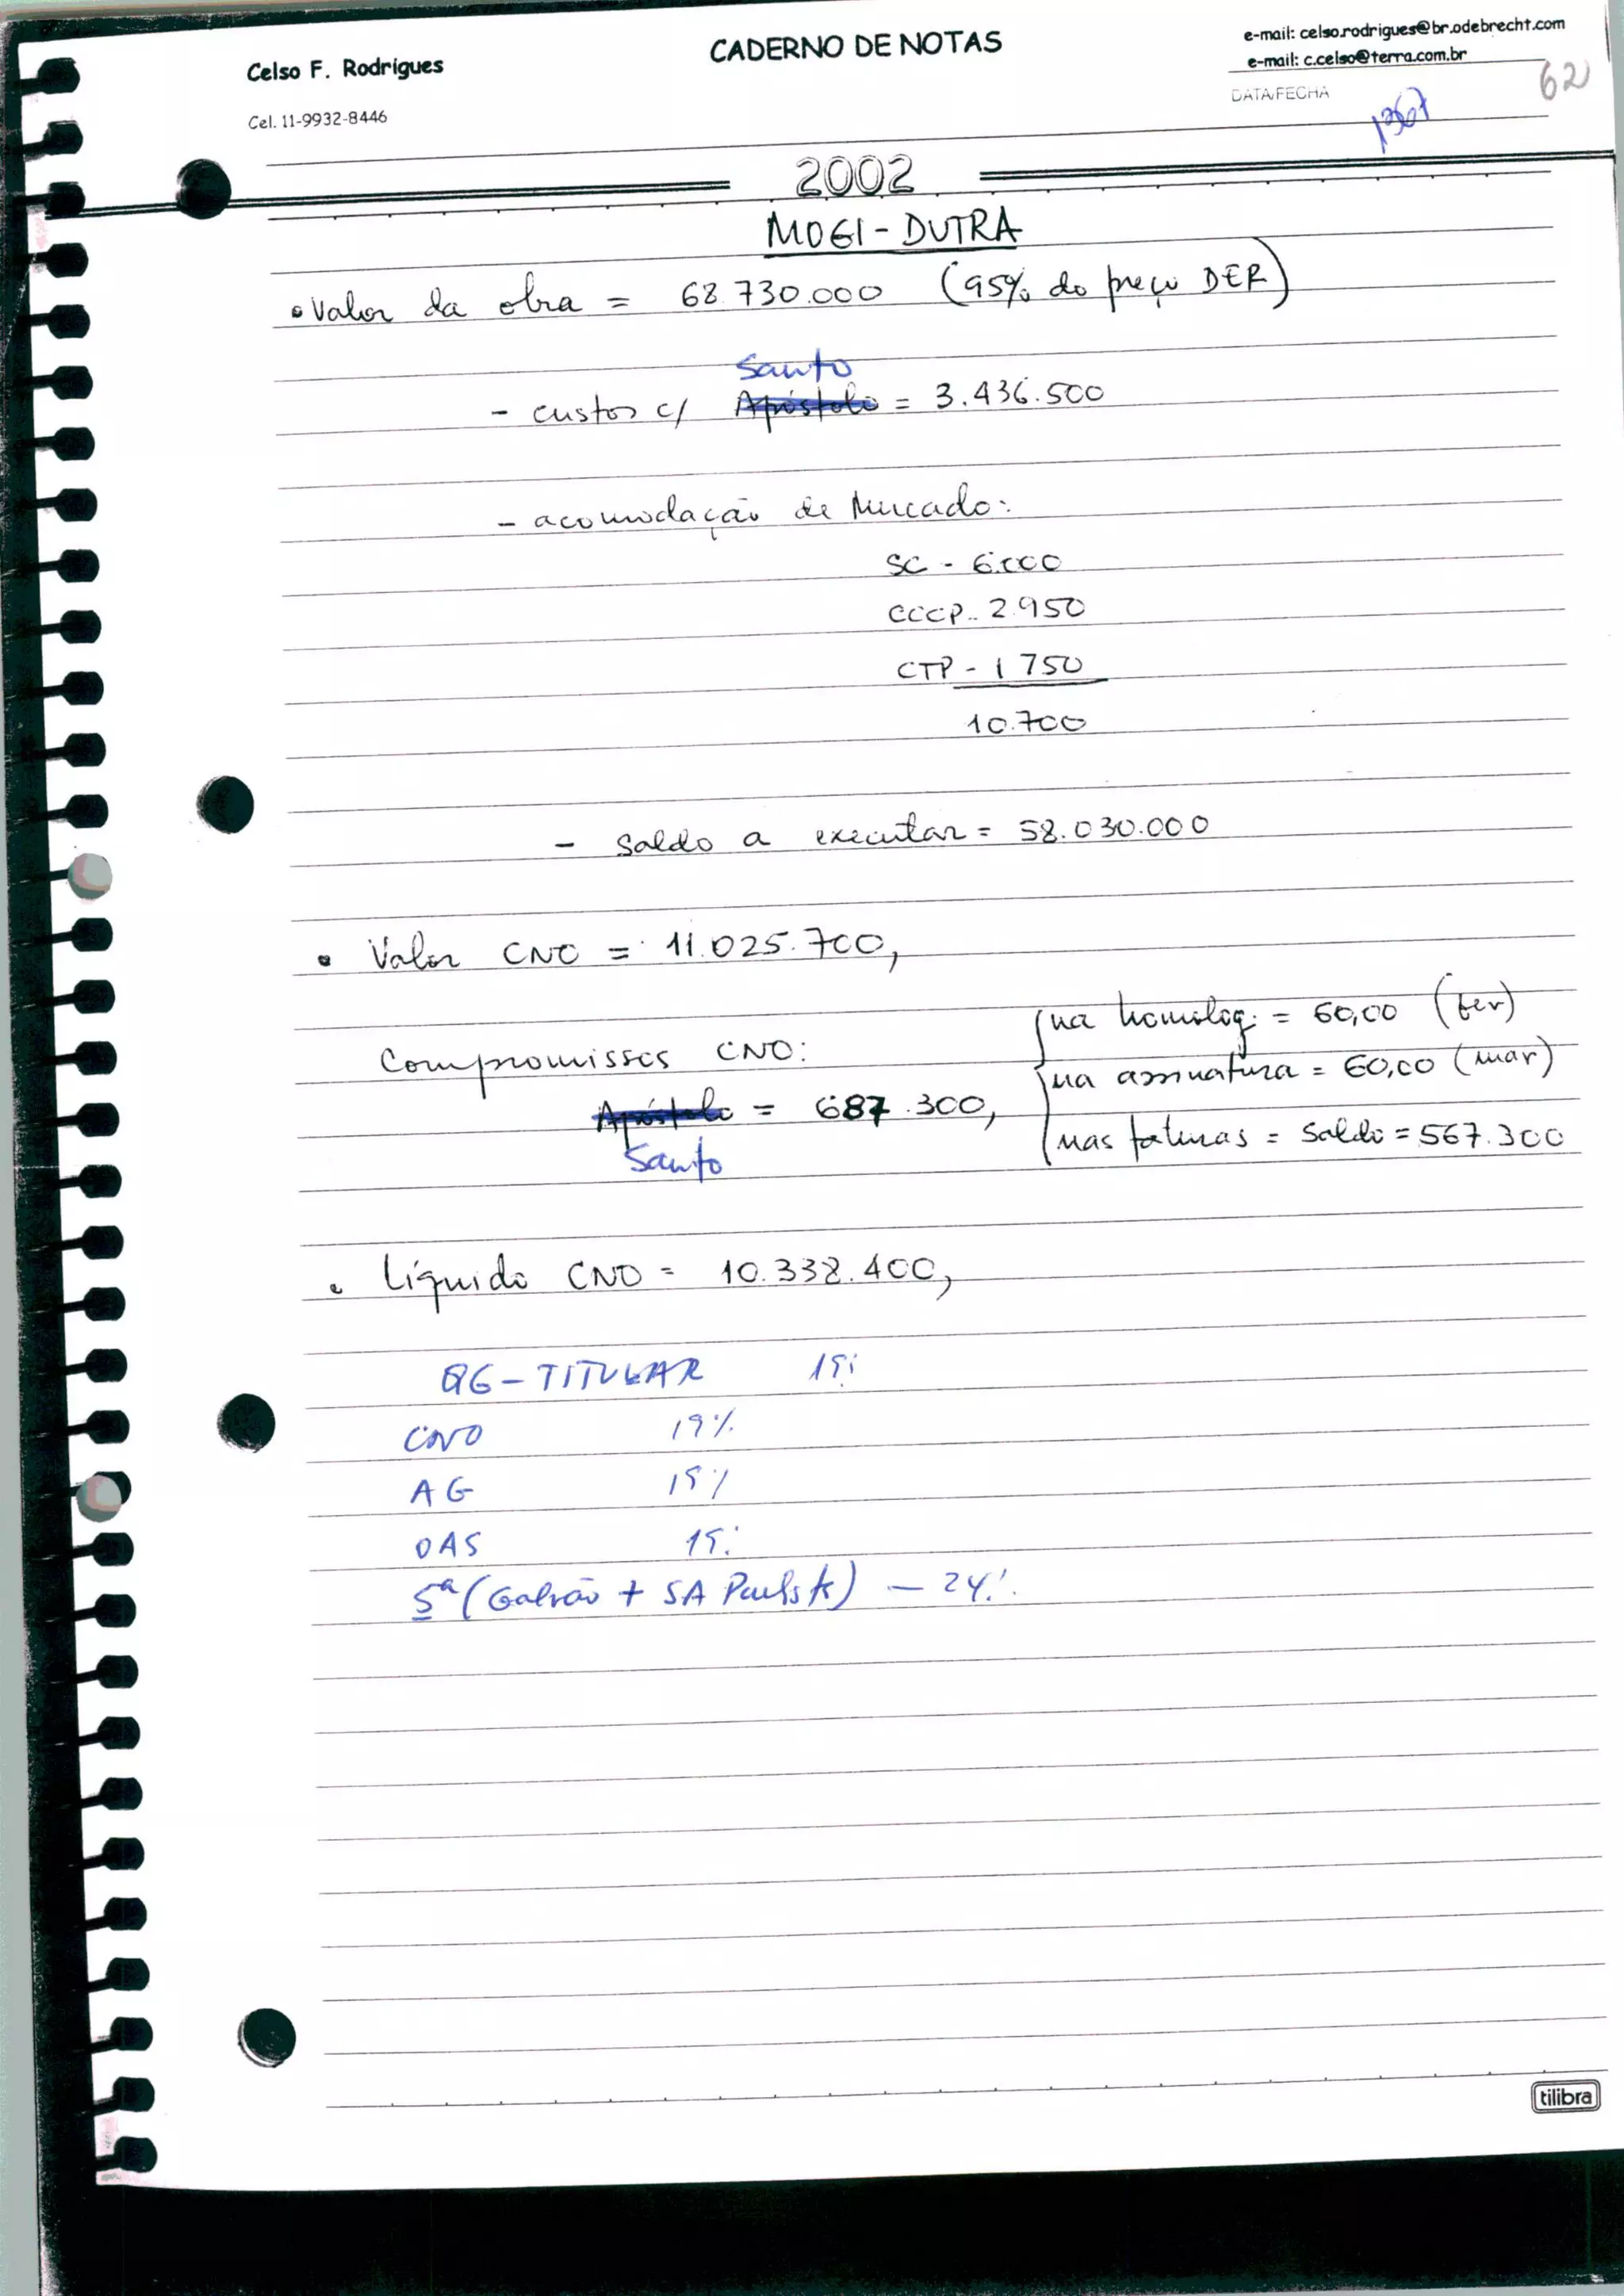 Celso F. Rodrigues
CADERNO DE NOTAS
e-mail: celso.rodrigues@br.odebrecht.com
e-mail: c.celso@terra.com.br
Cel. 11-9932-8446
DATA/FECHA
62
1367
2002
MOGI - DUTRA
• Valor da obra = 68.730.000 (95% do preço DER)
Santo
- custos c/ Apóstolo = 3.436.500
- acomodação de Mercado:
SC - 6.000
CCCP - 2.950
CTP - 1 750
10.700
- Saldo a executar = 58.030.000
• Valor CNO = 11.025.700,
Compromissos CNO:
Apóstolo = 687.300,
Santo
na homolog. = 60,00 (fev)
na assinatura = 60,00 (mar)
nas faturas = Saldo = 567.300
• Líquido CNO = 10.338.400,
QG - TITULAR
CNO 19%
AG 15%
OAS
5ª (Galvão + SA Paulista) - 24%
tilibra